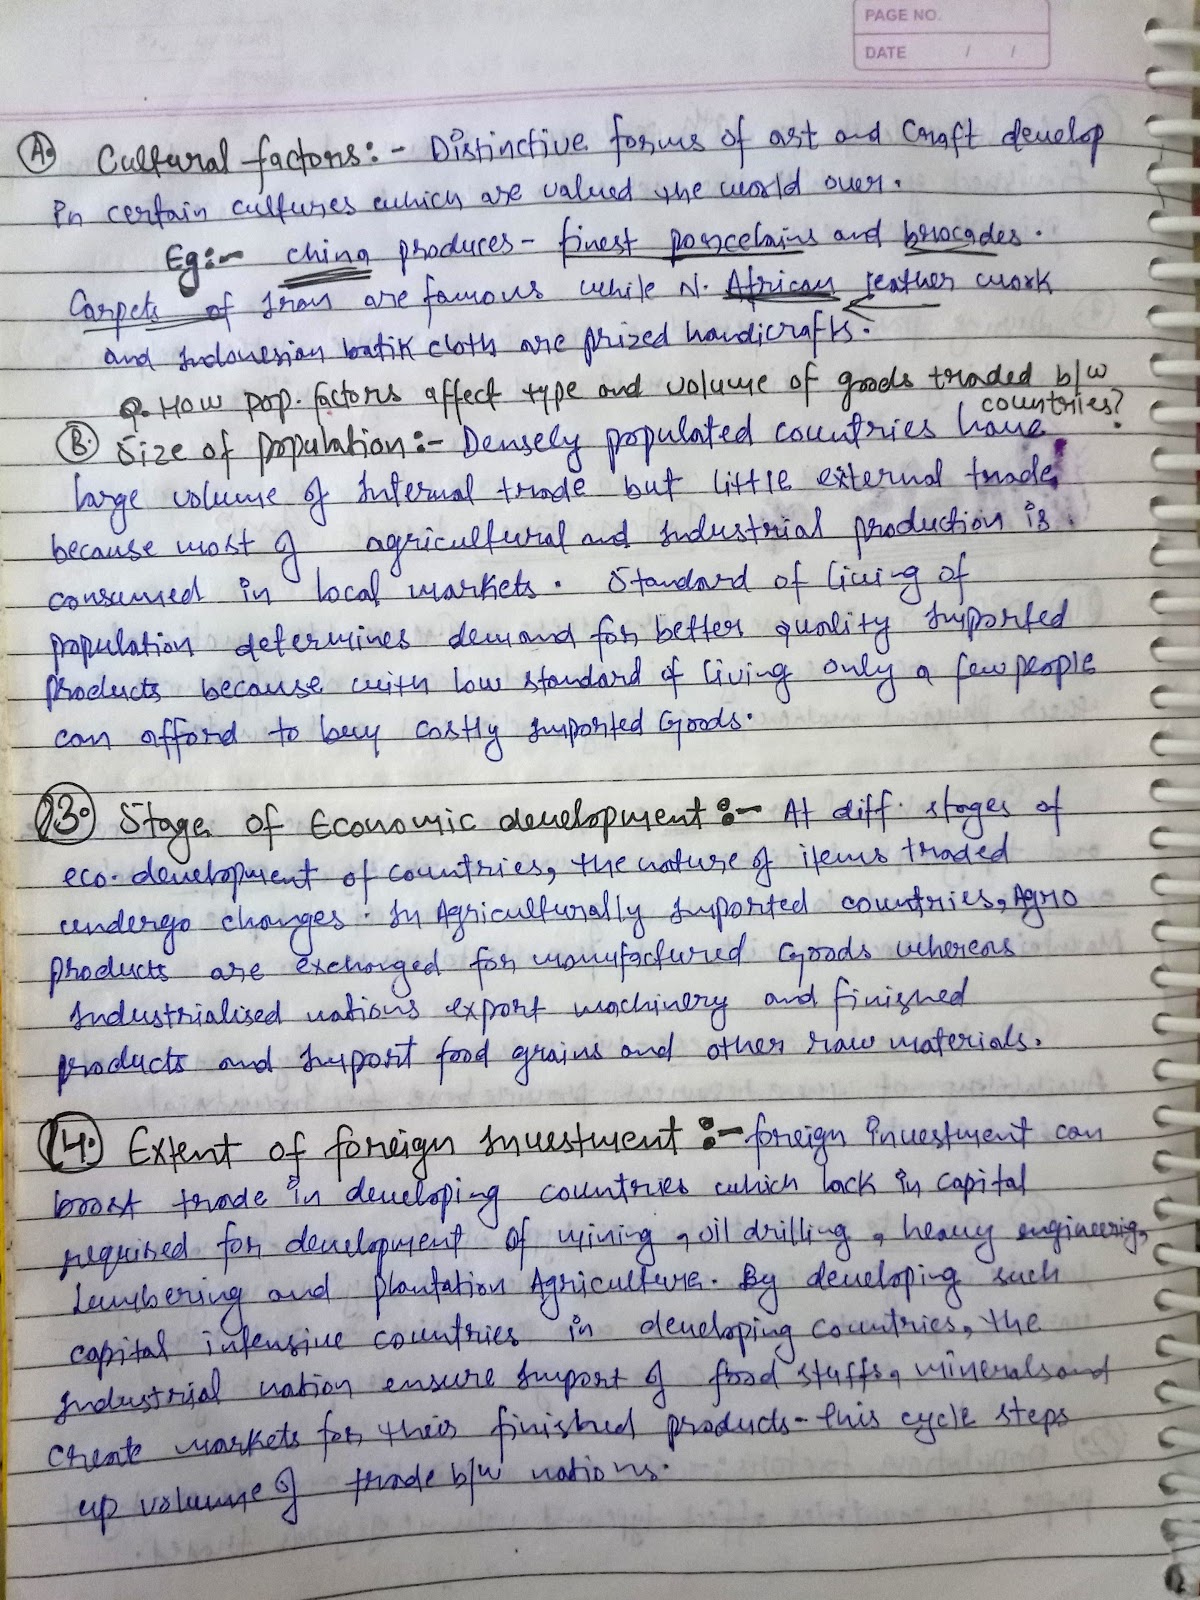 PAGE NO.
DATE / /
A. Cultural factors:- Distinctive forms of art and craft develop
in certain cultures which are valued the world over.
Eg:- china produces- finest porcelains and brocades.
Carpets of Iran are famous while N. African leather work
and Indonesian batik cloth are prized handicrafts.
Q. How pop. factors affect type and volume of goods traded b/w
countries?
B. Size of population:- Densely populated countries have
large volume of Internal trade but little external trade,
because most of agricultural and Industrial production is
consumed in local markets. Standard of living of
population determines demand for better quality Imported
products because with low standard of living only a few people
can afford to buy costly Imported Goods.
3. Stage of Economic development:- At diff. stages of
eco. development of countries, the nature of items traded
undergo changes. In Agriculturally Imported countries, Agro
products are exchanged for manufactured Goods whereas
Industrialised nations export machinery and finished
products and Import food grains and other raw materials.
4. Extent of foreign Investment:- foreign investment can
boost trade in developing countries which lack in capital
required for development of mining, oil drilling, heavy engineerig,
Lumbering and plantation Agriculture. By developing such
capital intensive countries in developing countries, the
Industrial nation ensure Import of food stuffs, minerals and
create markets for their finished products- this cycle steps
up volume of trade b/w nations.